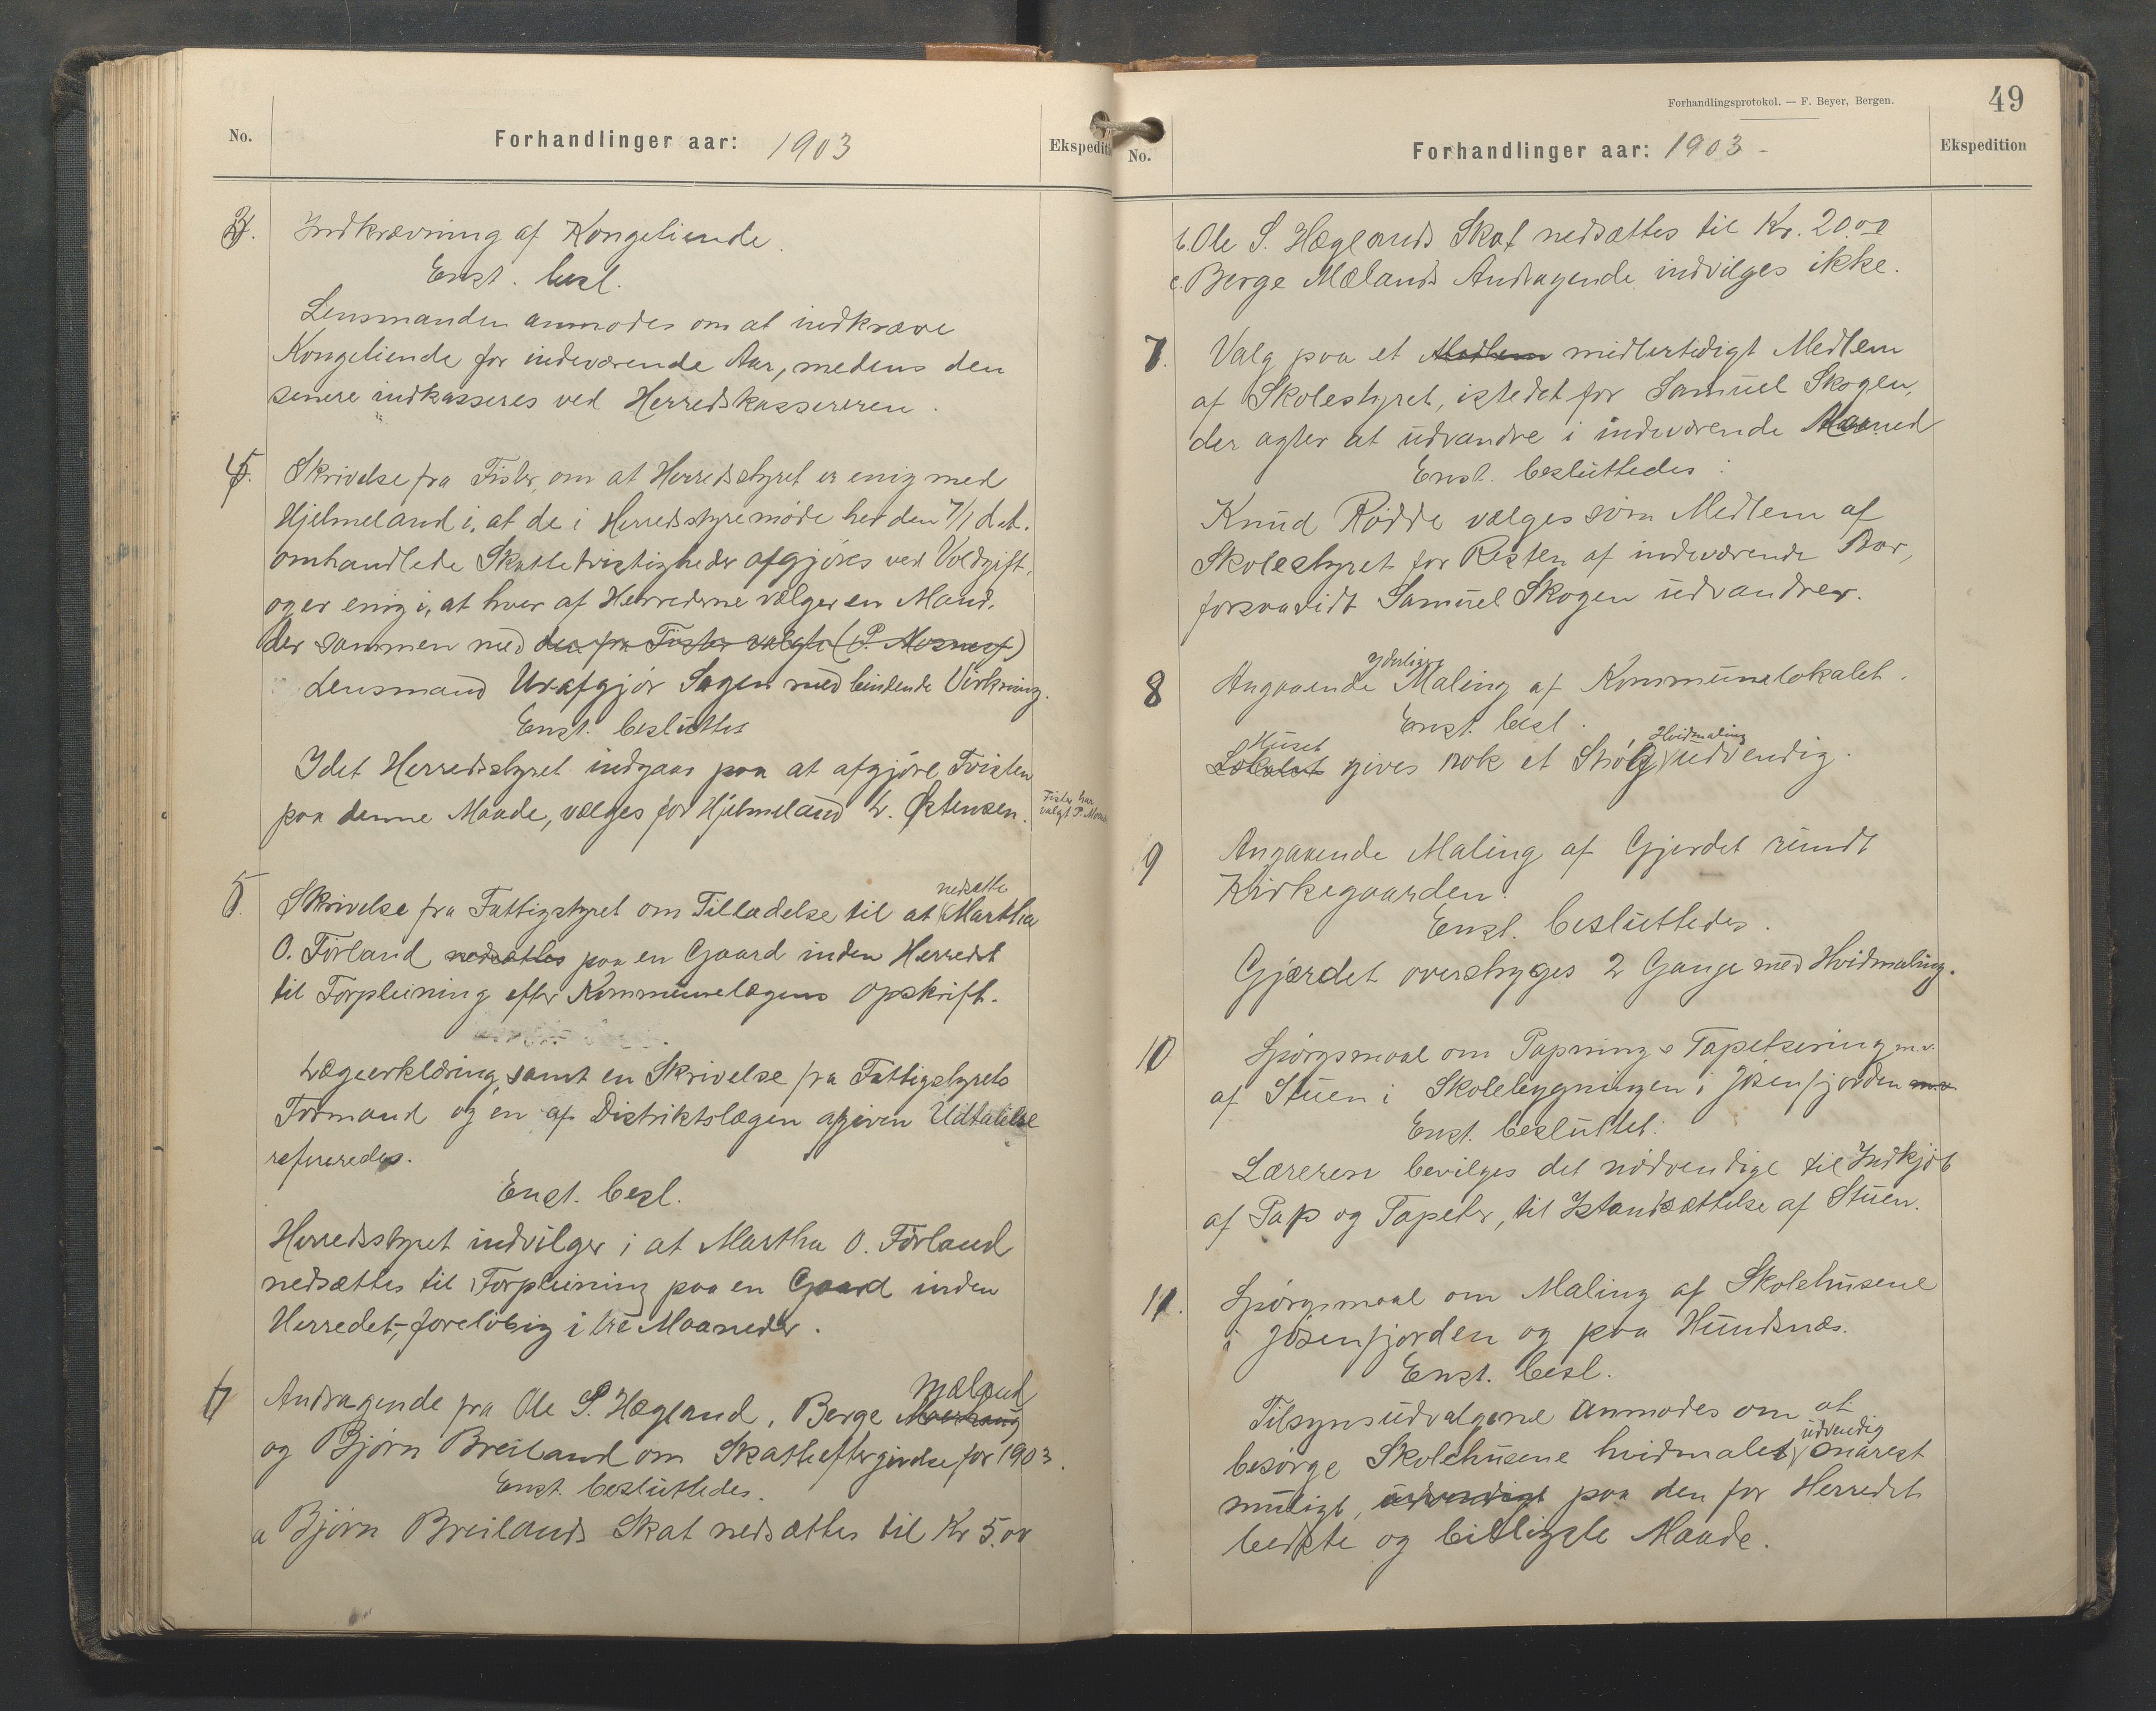 No.
Forhandlinger aar: 1903
Ekspediti
3.
Indkrævning af Kongetiende.
Enst. besl.
Lensmanden anmodes om at indkræve
Kongetiende for indeværende Aar, medens den
senere indkasseres ved Herredskassereren.
4.
Skrivelse fra Fister, om at Herredsstyret er enig med
Hjelmeland i, at de i Herredsstyremöde her den 7/1 d.A.
omhandlede Skattetvistigheder afgjöres ved Voldgift,
og er enig i, at hver af Herrederne vælger en Mand,
der sammen med den fra Fister valgte (P. Mosnes)
Lensmand Ur afgjör Sagen med bindende Virkning.
Enst. besluttet
Idet Herredsstyret indgaar paa at afgjöre Tvisten
paa denne Maade, vælges for Hjelmeland L. Østensen.
Fister har
valgt P. Mosn
5.
Skrivelse fra Fattigstyret om Tilladelse til at nedsætte Martha
O. Förland nedsættes paa en Gaard inden Herredet
til Forpleining efter Kommunelægens Opskrift.
Lægeerklæring, samt en Skrivelse fra Fattigstyrets
Formand og en af Distriktslægen afgiven Udtalelse
refereredes.
Enst. besl.
Herredsstyret indvilger i at Martha O. Förland
nedsættes til Forpleining paa en Gaard inden
Herredet, forelöbig i tre Maaneder.
6
Andragende fra Ole S. Hægland, Berge Mæland
og Björn Breiland om Skatteeftergivelse for 1903.
Enst. besluttedes.
a Björn Breilands Skat nedsættes til Kr 5.00
Forhandlingsprotokol. — F. Beyer, Bergen.
49
No.
Forhandlinger aar: 1903 -
Ekspedition
b. Ole S. Hæglands Skat nedsættes til Kr. 20.00
c. Berge Mælands Andragende indvilges ikke.
7.
Valg paa et Medlem midlertidigt Medlem
af Skolestyret, istedet for Samuel Skogen,
der agter at udvandre i indeværende Maaned
Enst. besluttedes:
Knud Rödde vælges som Medlem af
Skolestyret for Resten af indeværende Aar,
forsaavidt Samuel Skogen udvandrer.
8
Angaaende yderligere Maling af Kommunelokalet.
Enst. besl.
Lokalet Huset gives nok et Strög Hvidmaling udvendig.
9
Angaaende Maling af Gjerdet rundt
Kirkegaarden.
Enst. besluttedes.
Gjærdet overstryges 2 Gange med Hvidmaling.
10
Spörgsmaal om Papning & Tapetsering m.v.
af Stuen i Skolebygningen i Jösenfjorden m.v.
Enst. besluttet:
Læreren bevilges det nödvendige til Indkjöb
af Pap og Tapeter, til Istandsættelse af Stuen.
11.
Spörgsmaal om Maling af Skolehusene
i Jösenfjorden og paa Hundsnæs.
Enst. besl.
Tilsynsudvalgene anmodes om at
besörge Skolehusene hvidmalet udvendig snarest
muligt, udvendigt paa den for Herredet
bedste og billigste Maade.